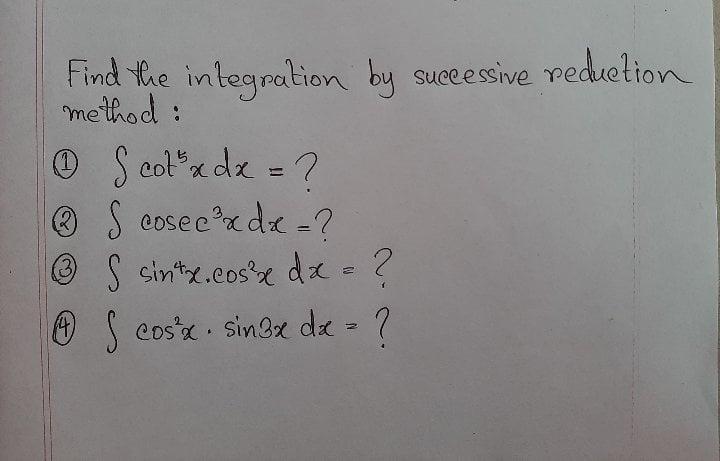 Find the integration by successive reduction
method :
① ∫ cot⁵x dx = ?
② ∫ cosec³x dx = ?
③ ∫ sin⁴x.cos²x dx = ?
④ ∫ cos²x . sin3x dx = ?